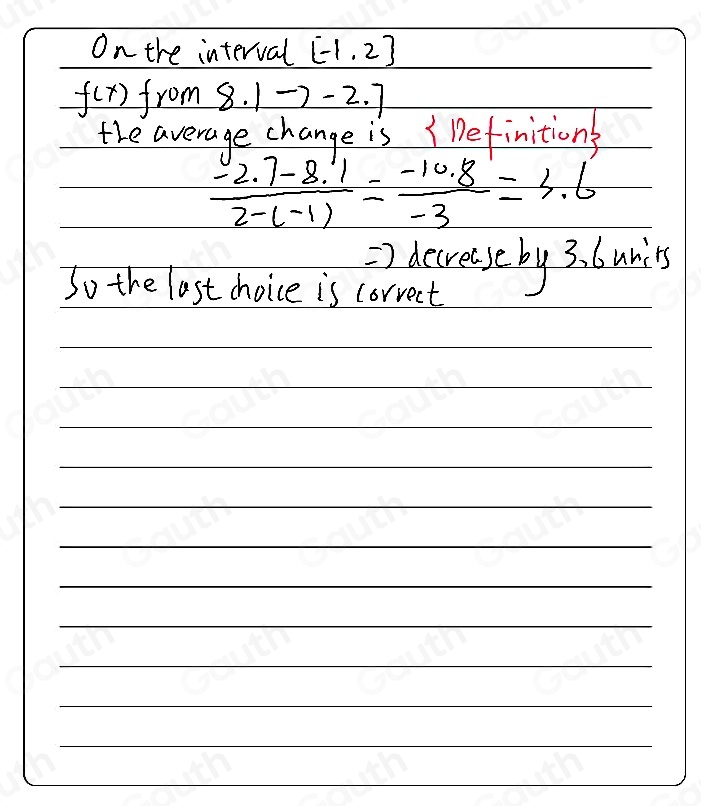 On the interval [-1.2]
f(x) from 8.1 → -2.7
the average change is {Definition}
\frac{-2.7-8.1}{2-(-1)} = \frac{-10.8}{-3} = 3.6
=> decrease by 3.6 units
So the last choice is correct